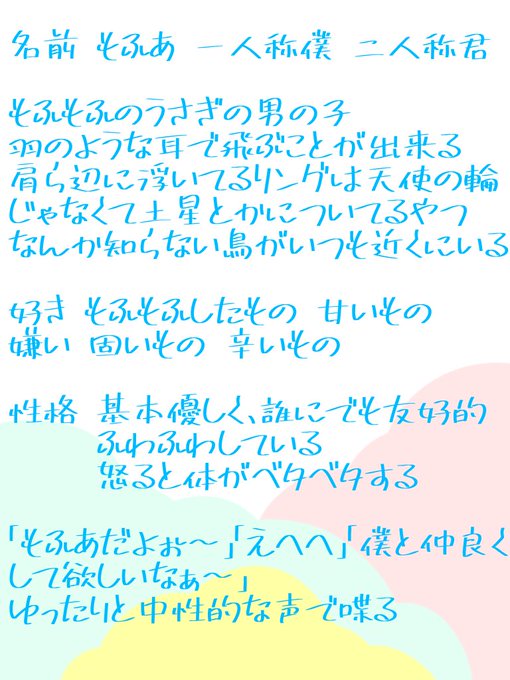 名前 もふあ 一人称僕 二人称君
もふもふのうさぎの男の子
羽のような耳で飛ぶことが出来る
肩ら辺に浮いてるリングは天使の輪
じゃなくて土星とかについてるやつ
なんか知らない鳥がいつも近くにいる
好き もふもふしたもの 甘いもの
嫌い 固いもの 辛いもの
性格 基本優しく、誰にでも友好的
ふわふわしている
怒ると体がベタベタする
「もふあだよぉ～」「えへへ」「僕と仲良く
して欲しいなぁ～」
ゆったりと中性的な声で喋る